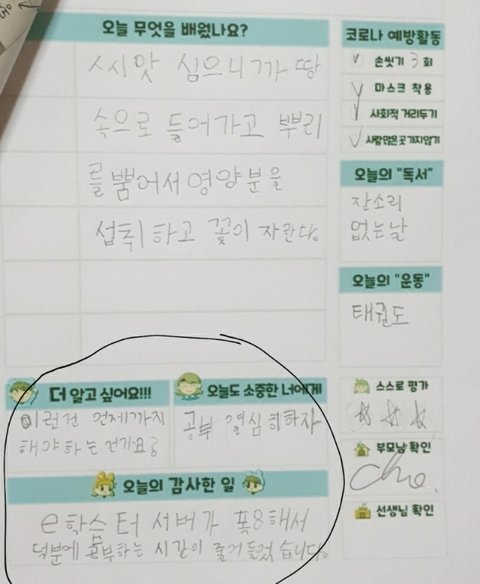 오늘 무엇을 배웠나요?
씨앗 심으니까 땅
속으로 들어가고 뿌리
를 뿜어서 영양분을
섭취하고 꽃이 자란다.
코로나 예방활동
손씻기 3회
마스크 착용
사회적 거리두기
사람많은곳가지않기
오늘의 "독서"
잔소리
없는날
오늘의 "운동"
태권도
더 알고 싶어요!!!
이런건 언제까지
해야하는 건가요?
오늘도 소중한 너에게
공부 열심히하자
스스로 평가
부모님 확인
cho.
선생님 확인
오늘의 감사한 일
e학습터 서버가 폭8해서
덕분에 공부하는 시간이 줄어들었습니다.